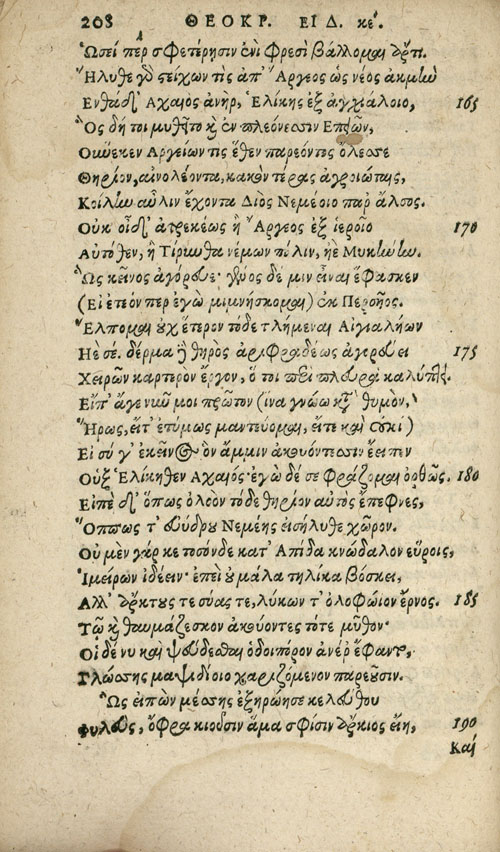 208 ΘΕΟΚΡ. ΕΙΔ. κέ.
Ὡσεὶ πὲρ σφετέρῃσιν ἐνὶ φρεσὶ βάλλομαι ἄρτι.
Ἤλυθε γὸ στείχων τὶς ἀπ' Ἄργεος ὡς νέος ἀκμὼ
Ενθάδ' Αχαιὸς ἀνὴρ, Ἑλίκης ἐξ ἀγχιάλοιο, 165
Ὃς δή τοι μυθεῖτο κ̀ ἐν πλεόνεσσιν Επειῶν,
Οὕνεκεν Αργείων τις ἕθεν παρεόντος ὄλεσσε
Θηρίον, αἰνολέοντα, κακὸν τέρας ἀγροιώταις,
Κοίλην αὖλιν ἔχοντα Διὸς Νεμέοιο παρ' ἄλσος.
Οὐκ οἶδ' ἀτρεκέως ἢ Ἄργεος ἐξ ἱεροῖο 170
Αὐτόθεν, ἢ Τίρυνθα νέμων πόλιν, ἠὲ Μυκήνην.
Ὣς κεῖνος ἀγόρευε· γένος δέ μιν εἶναι ἔφασκεν
(Εἰ ἐτεόν περ ἐγὼ μιμνήσκομαι) ἐκ Περσῆος.
Ἔλπομαι οὐχ ἕτερον τόδε τλήμεναι Αἰγιαλήων
Ηὲ σέ. δέρμα ἢ θηρὸς ἀριφραδέως ἀγορεύει 175
Χειρῶν καρτερὸν ἔργον, ὅ τοι περὶ πλευρὰ καλύπτει.
Εἴπ' ἄγε νυῦ μοι πρῶτον (ἵνα γνώω κατὰ θυμὸν,
Ἥρως, εἴτ' ἐτύμως μαντεύομαι, εἴτε καὶ οὐκί)
Εἰ σύ γ' ἐκεῖνος ὃν ἄμμιν ἀκουόντεσσιν ἔειπεν
Οὑξ Ἑλίκηθεν Αχαιός· ἐγὼ δέ σε φράζομαι ὀρθῶς. 180
Εἰπὲ δ' ὅπως ὀλοὸν τόδε θηρίον αὐτὸς ἔπεφνες,
Ὅππως τ' εὔυδρον Νεμέης εἰσήλυθε χῶρον.
Οὐ μὲν γάρ κε τοσόνδε κατ' Απίδα κνώδαλον εὕροις,
Ἱμείρων ἰδέειν· ἐπεὶ οὐ μάλα τηλίκα βόσκει,
Αλλ' ἄρκτους τε σύας τε, λύκων τ' ὀλοφώιον ἔρνος. 185
Τῶ κ̀ θαυμάζεσκον ἀκούοντες τότε μῦθον·
Οἱ δέ νυ καὶ ψεύδεσθαι ὁδοιπόρον ἀνέρ' ἔφαντο,
Γλώσσης μαψιδίοιο χαριζόμενον παρεοῦσιν.
Ὣς εἰπὼν μέσσης ἐξηρώησε κελεύθου
Φυλεὺς, ὄφρα κιοῦσιν ἅμα σφίσιν ἄρκιος εἴη, 190
Καί